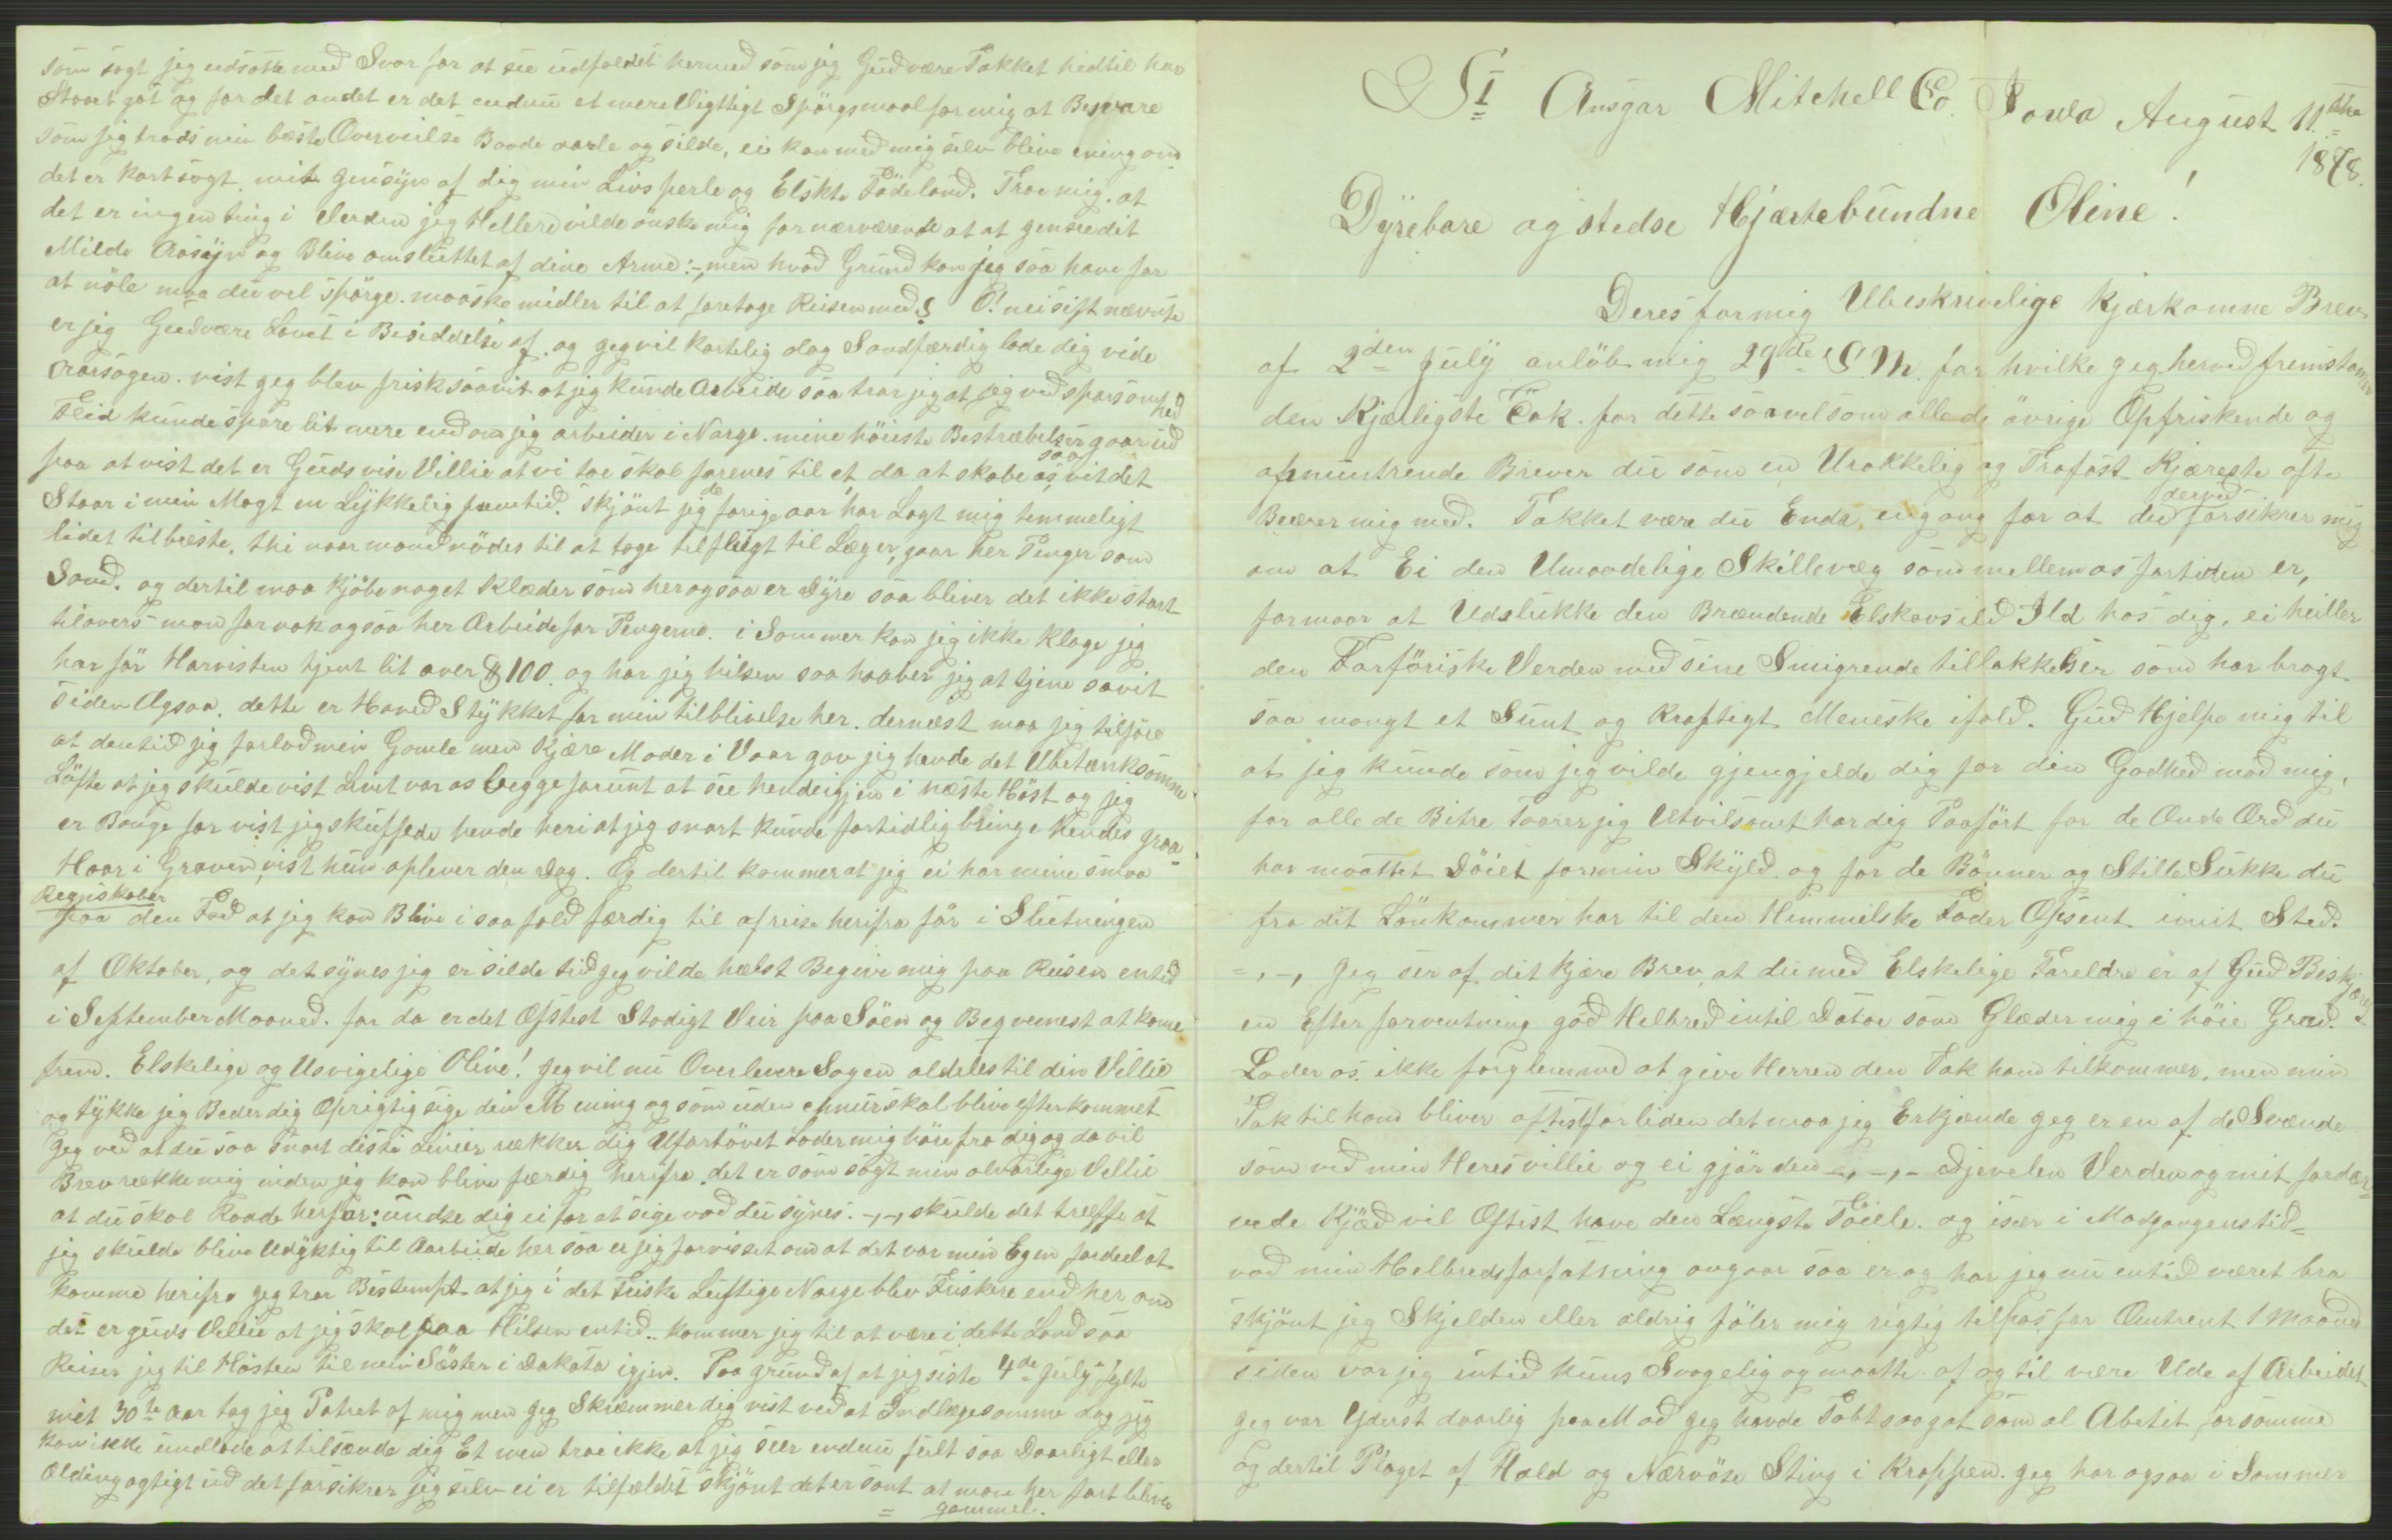 St Ansgar Mitchell Co. Iowa August 11the
1878.
Dyrebare og stedse Hjærtebundne Oline!
Deres for mig Ubeskrivelige kjærkomne Brev
af 2den July anlöb mig 29de s.M. for hvilke jeg herved fremstamer
den Kjærligste Tak. for dette saavelsom alle de övrige Opfriskende og
opmuntrende Brever du som en Urokkelig og Trofast Kjæreste ofte
Beærer mig med. Takket være du Enda engang for at du derved forsikrer mig
om at Ei den Umaadelige Skillevæg som mellem os fortiden er,
formaar at Udslukke den Brændende Elskovs ild Ild hos dig, ei heller
den Forföriske Verden med sine Smigrende tillokkelser som har bragt
saa mangt et Sunt og Kraftigt Meneske ifald. Gud Hjelpe mig til
at jeg kunde som jeg vilde gjengjelde dig for din Godhed mod mig,
for alle de Bitre Taarer jeg Utvilsomt har dig Paafört for de Onde Ord du
har maattet Döiet for min Skyld og for de Bönner og Stille Sukke du
fra dit Lönkammer har til den Himmelske Fader Opsent imit Sted.
-,-, Jeg ser af dit kjære Brev, at du med Elskelige Foreldre er af Gud Beskjæret
en Efter forventning god Helbred intil Datoe som Glæder mig i höie Grad.
Lader os ikke forglemme at give Herren den Tak ham tilkommer, men min
Tak til ham bliver oftest for liden det maa jeg Erkjænde jeg er en af de Svænde
som ved min Heres villie og ei gjör den -,-,- Djevelen Verden og mit fordær-
vede Kjød vil Oftest have den Længste Töiele. og især i Modgangens tid-
vad min Helbreds forfatning angaar saa er og har jeg nu entid været bra
skjönt jeg Skjelden eller aldrig föler mig rigtig tilpas, for Omtrent 1 Maaned
siden var jeg entid kuns Svagelig og maatte af og til være Ude af Arbeidet
jeg var Yderst daarlig paa Mad jeg havde Tabt saagot som al Abetit for somme
og dertil Plaget af Hold og Nærvöse Sting i Kroppen. jeg har ogsaa i Sommer
som sagt jeg udsatte med Svar for at see udfaldet hermed som jeg Gud være Takket hidtil har
Staaet got og for det andet er det endnu et mere Vigttigt Spörgsmaal for mig at Besvare
som jeg trods min beste Overveielse Baade aarle og silde, ei kan med mig selv blive ening om
det er kort sagt mit gensyn af dig min Livs perle og Elskte Födeland. Troe mig. at
det er ingen ting i Verden jeg Hellere vilde önske mig for nærværende at at gensee dit
Milde Aasyn og Blive omsluttet af dine Arme:-, men hvad Grund kan jeg saa have for
at nöle maa du vel spörge. maaske midler til at foretage Reisen med? O! nei sist nævnte
er jeg Gud være Lovet i Besiddelse af. og jeg vil kortelig dog Sandfærdig lade dig vide
Aarsagen. vist jeg blev frisk saavit at jeg kunde Arbeide saa tror jeg at jeg ved sparsomhed
Flid kunde spare lit mere end om jeg arbeider i Norge. mine höieste Bestræbelser gaar ud
paa at vist det er Guds vise Villie at vi toe skal forenes til et da at skabe os saa vit det
Staar i min Magt en Lykkelig fremtid. skjönt jeg de forige aar har Lagt mig temmeligt
lidet tilbeste, thi naar man nödes til at tage tilflugt til Læger, gaar her Penger som
Sand. og dertil maa kjöbe noget klæder som her ogsaa er dyre saa bliver det ikke stort
tilovers man for nok ogsaa her Arbeide for Pengerne. i Sommer kan jeg ikke klage jeg
har för Harvisten tjent lit over $100. og har jeg hilsen saa haaber jeg at tjene savit
siden Ogsaa. dette er Hoved Stykket for min tilblivelse her. dernæst maa jeg tilföie
at den tid jeg forlod min Gamle men Kjære Moder i Vaar gav jeg hende det Ubetænksomme
Löfte at jeg skulde vist Livet var os begge forunt at see hende igjen i næste Höst og jeg
er Bange for vist jeg skuffede hende heri at jeg snart kunde fortidlig bringe hendes graa-
Haar i Graven, vist hun oplever den Dag. Og dertil kommer at jeg ei har mine smaa
Regnskaber
paa den Fod at jeg kan Blive i saa fald færdig til afreise herifra för i Slutningen
af Oktober, og det synes jeg er silde tid jeg vilde helst Begive mig paa Reisen entid
i September Maaned. for da er det Oftest Stadigt Veir paa Söen og Beqvemest at komme
frem. Elskelige og Usvigelige Oline! jeg vil nu Overlevere Sagen aldeles til din Villie
og tykke jeg Beder dig Oprigtig sige din Mening og som uden skal blive efterkommet
jeg ved at du saa snart diste Linier rækker dig Ufortövet Lader mig höre fra dig og da vil
Brev række mig inden jeg kan blive færdig herifra. det er som sagt min alvorlige Villie
at du skal Raade herfor: undse dig ei for at sige vad du synes. -,-, skulde det treffe at
jeg skulde blive Udyktig til Aarbeide her saa er jeg forvisset om at det var min Egen fordeel at
komme herifra jeg tror Bestempt at jeg i det Friske Luftige Norge blev Friskere end her om
det er guds Villie at jeg skal faa Hilsen entid.. kommer jeg til at være i dette Land saa
Reiser jeg til Hösten til min Söster i Dakota igjen. Paa grund af at jeg siste 4de July fylte
mit 30te aar tog jeg Potret af mig men jeg Skræmmer dig vist ved at Indlægesamme dog jeg
kan ikke undlade at tilsænde dig Et men troe ikke at jeg seer endnu fult saa Daarligt eller
Oldingagtigt ud det forsikrer jeg selv ei er tilfældet skjönt det er sant at man her fort bliver
= gammel.